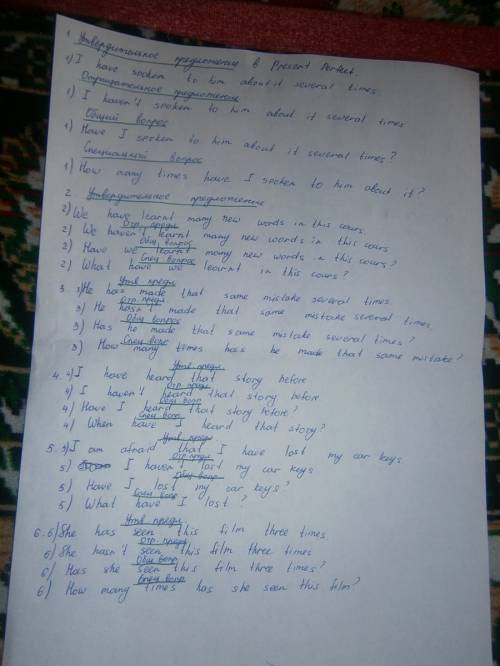 1 Утвердительное предложение в Present Perfect.
1) I have spoken to him about it several times
Отрицательное предложение
1) I haven't spoken to him about it several times
Общий вопрос
1) Have I spoken to him about it several times?
Специальный вопрос
1) How many times have I spoken to him about it?
2. Утвердительное предложение
2) We have learnt many new words in this cours
Отр. предл
2) We haven't learnt many new words in this cours
Общ. вопрос
2) Have we learnt many new words in this cours?
Спец вопрос
2) What have we learnt in this cours?
Утв предл.
3. 3) He has made that same mistake several times
Отр. предл
3) He hasn't made that same mistake several times
Общ вопрос
3) Has he made that same mistake several times?
Спец вопр
3) How many times has he made that same mistake?
Утв предл.
4. 4) I have heard that story before
Отр предл
4) I haven't heard that story before
Общ вопр
4) Have I heard that story before?
Спец вопр.
4) When have I heard that story?
Утв предл
5. 5) I am afraid that I have lost my car keys
Отр предл
5) I haven't lost my car keys
Общ вопр
5) Have I lost my car keys?
Спец вопр
5) What have I lost?
Утв предл
6. 6) She has seen this film three times
Отр. предл
6) She hasn't seen this film three times
Общ вопр.
6) Has she seen this film three times?
Спец вопр.
6) How many times has she seen this film?